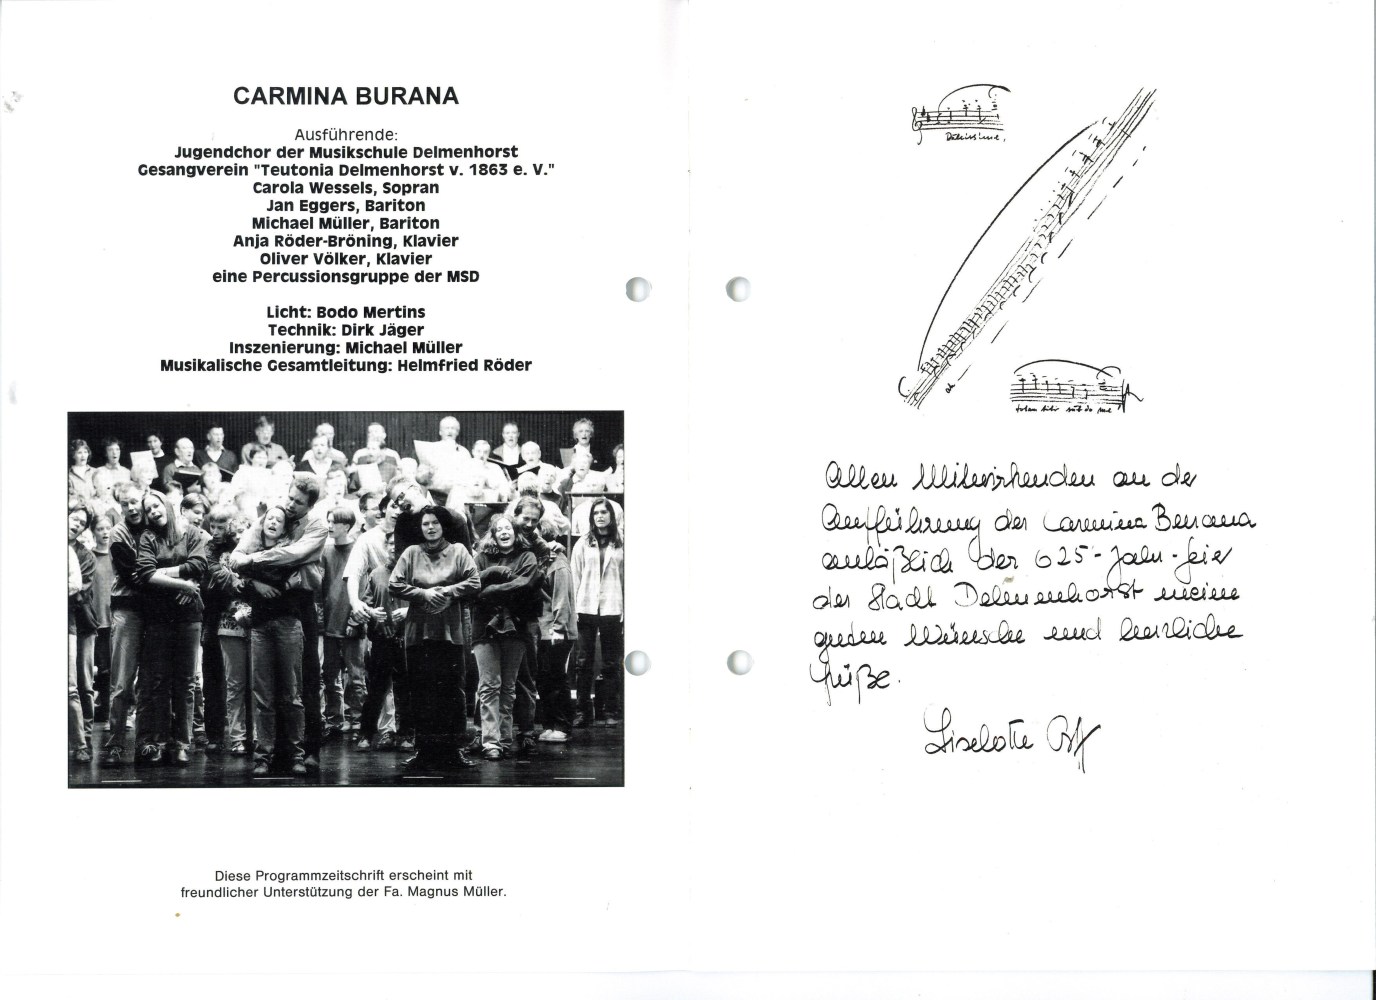 CARMINA BURANA
Ausführende:
Jugendchor der Musikschule Delmenhorst
Gesangverein "Teutonia Delmenhorst v. 1863 e. V."
Carola Wessels, Sopran
Jan Eggers, Bariton
Michael Müller, Bariton
Anja Röder-Bröning, Klavier
Oliver Völker, Klavier
eine Percussionsgruppe der MSD
Licht: Bodo Mertins
Technik: Dirk Jäger
Inszenierung: Michael Müller
Musikalische Gesamtleitung: Helmfried Röder
Diese Programmzeitschrift erscheint mit
freundlicher Unterstützung der Fa. Magnus Müller.
Dulcissime,
ah
totam tibi subdo me
Allen Mitwirkenden an der
Aufführung der Carmina Burana
anläßlich der 625-Jahr-feier
der Stadt Delmenhorst meine
guten Wünsche und herzliche
Grüße.
Liselotte Orff